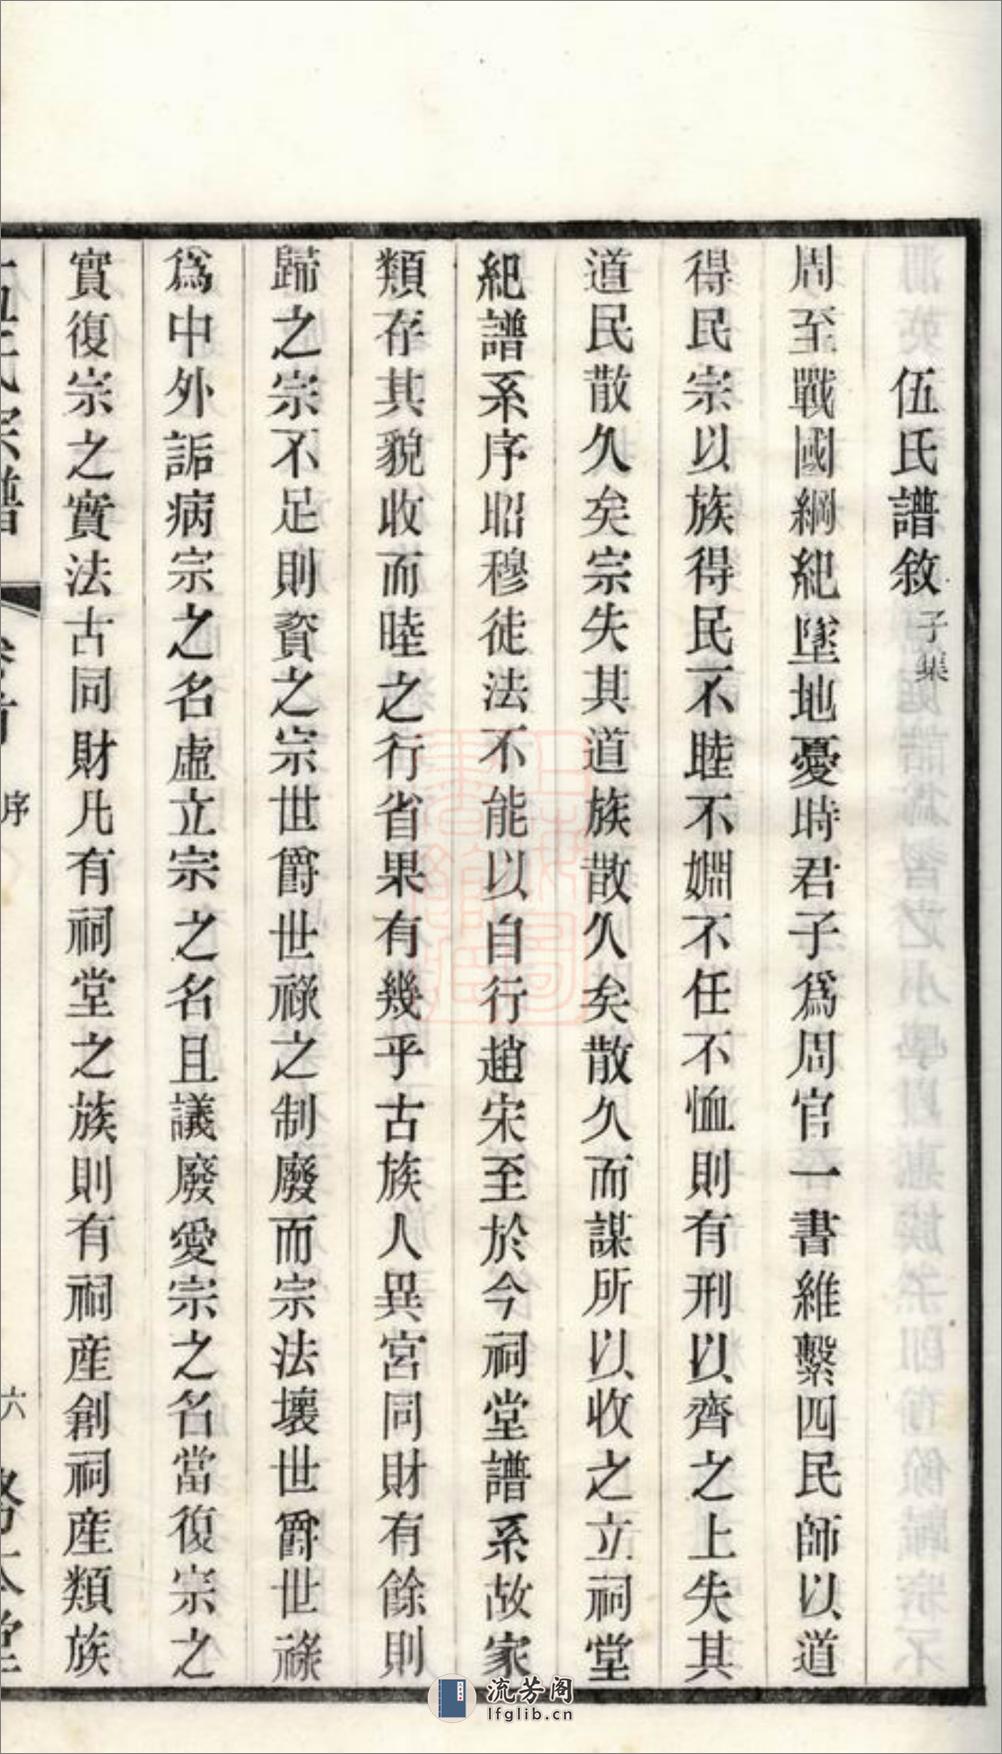 伍氏譜敘子集
周至戰國綱紀墜地憂時君子爲周官一書維繫四民師以道
得民宗以族得民不睦不婣不任不恤則有刑以齊之上失其
道民散久矣宗失其道族散久矣散久而謀所以收之立祠堂
紀譜系序昭穆徒法不能以自行趙宋至於今祠堂譜系故家
類存其貌收而睦之行省果有幾乎古族人異宮同財有餘則
歸之宗不足則資之宗世爵世祿之制廢而宗法壞世爵世祿
爲中外詬病宗之名虛立宗之名且議廢愛宗之名當復宗之
實復宗之實法古同財凡有祠堂之族則有祠産創祠産類族
伍氏宗譜
卷首
序
六
流芳阁
lfglib.cn